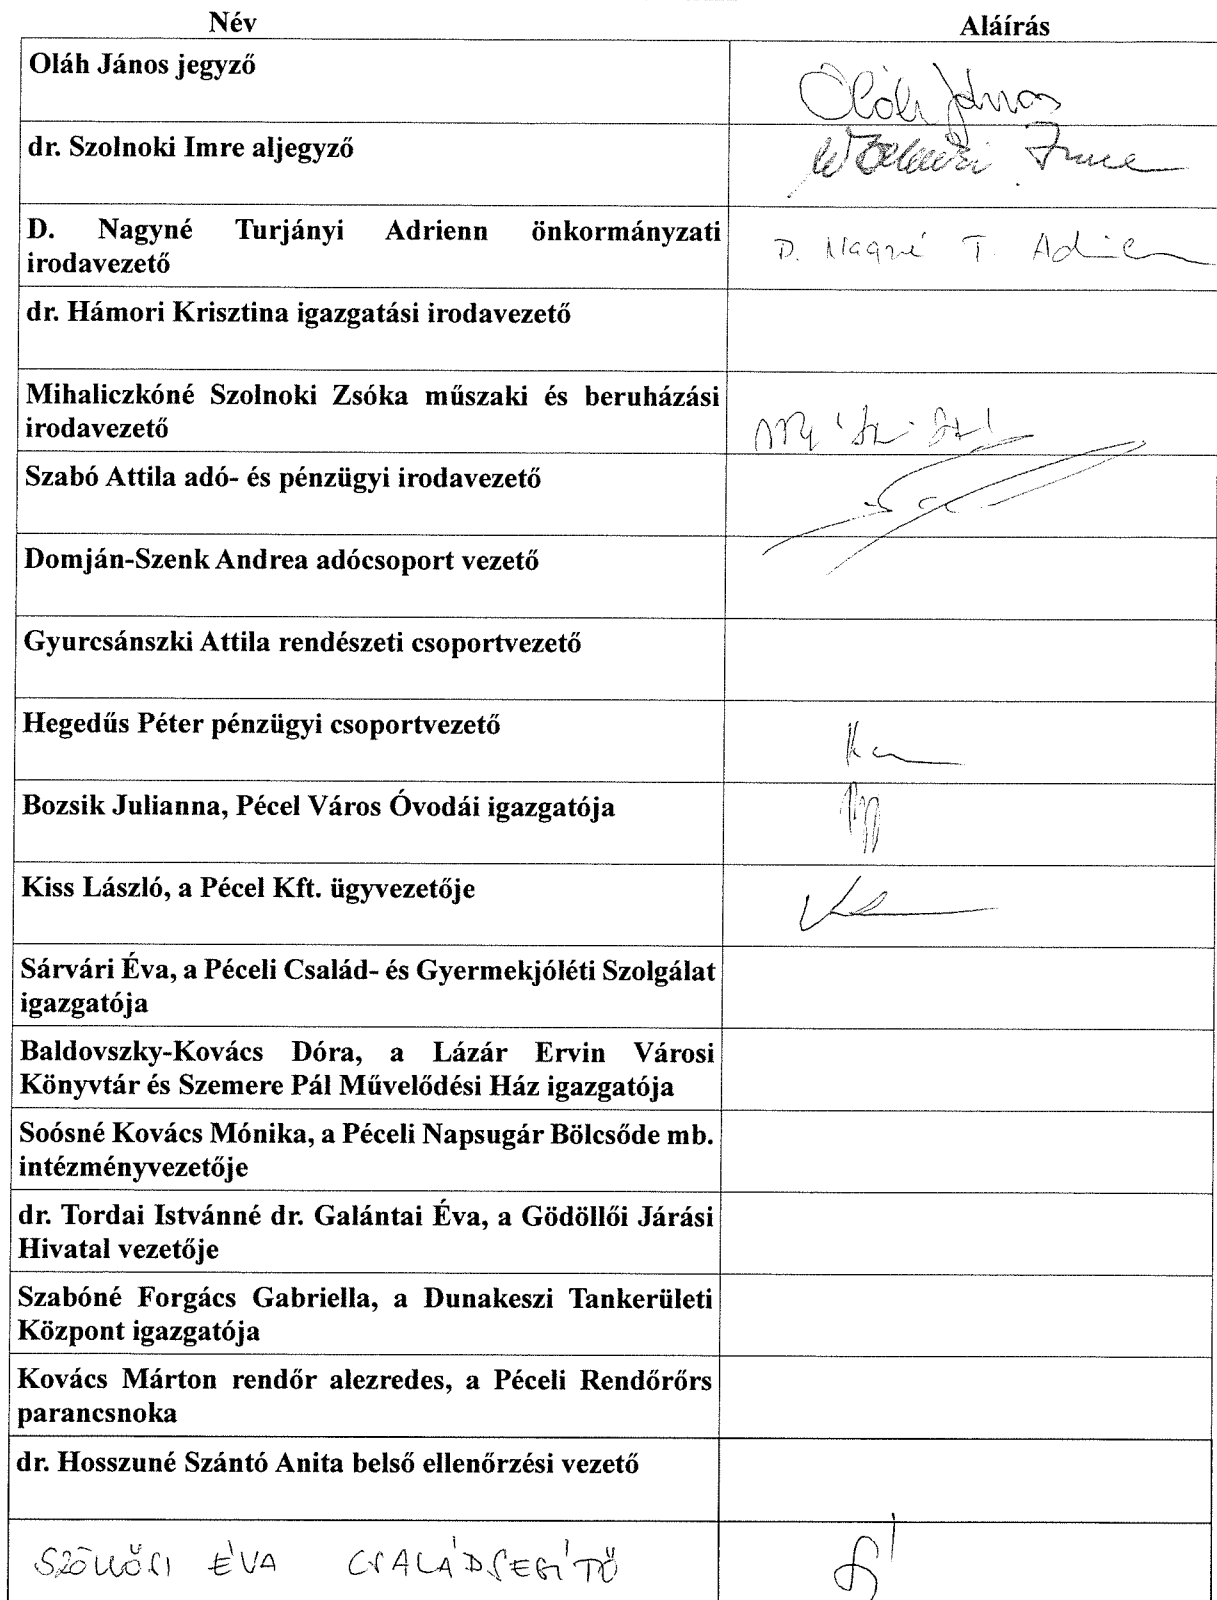 Név Aláírás
Oláh János jegyző
Oláh János
dr. Szolnoki Imre aljegyző
Szolnoki Imre
D. Nagyné Turjányi Adrienn önkormányzati
irodavezető
D. Nagyné T. Adrienn
dr. Hámori Krisztina igazgatási irodavezető
Mihaliczkóné Szolnoki Zsóka műszaki és beruházási
irodavezető
Szabó Attila adó- és pénzügyi irodavezető
Domján-Szenk Andrea adócsoport vezető
Gyurcsánszki Attila rendészeti csoportvezető
Hegedűs Péter pénzügyi csoportvezető
Bozsik Julianna, Pécel Város Óvodái igazgatója
Kiss László, a Pécel Kft. ügyvezetője
Sárvári Éva, a Péceli Család- és Gyermekjóléti Szolgálat
igazgatója
Baldovszky-Kovács Dóra, a Lázár Ervin Városi
Könyvtár és Szemere Pál Művelődési Ház igazgatója
Soósné Kovács Mónika, a Péceli Napsugár Bölcsőde mb.
intézményvezetője
dr. Tordai Istvánné dr. Galántai Éva, a Gödöllői Járási
Hivatal vezetője
Szabóné Forgács Gabriella, a Dunakeszi Tankerületi
Központ igazgatója
Kovács Márton rendőr alezredes, a Péceli Rendőrőrs
parancsnoka
dr. Hosszuné Szántó Anita belső ellenőrzési vezető
SZÖLLŐSI ÉVA CSALÁDSEGÍTŐ